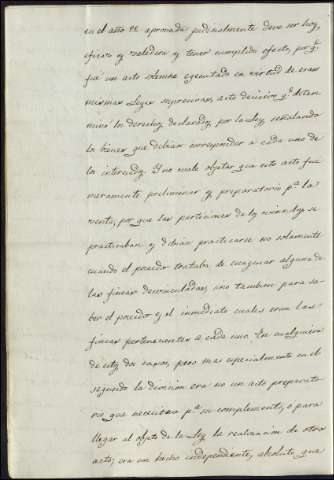 en el año 22 aprovada judicialmente deve ser hoy,
eficaz y valedera y tener cumplido efecto, por q.e
fué un acto solemne egecutado en virtud de esas
mismas leyes supresivas, acto decisivo q.e deter-
minó los derechos declarados por la Ley, señalando
los bienes que debian corresponder á cada uno de
los interesados. Y no vale objetar que este acto fue
meramente preliminar y preparatorio p.a la
venta, por que las particiones de los vinculos se
practicaban y debian practicarse no solamente
cuando el poseedor trataba de enagenar alguna de
las fincas desvinculadas, sino tambien para sa-
ber el poseedor y el inmediato cuales eran las
fincas pertenecientes á cada uno. En cualquiera
de estos dos casos, pero mas especialmente en el
segundo la division era no un acto preparato-
rio que necesitase p.a su complemento, ó para
llegar al objeto de la Ley la realizacion de otro
acto; era un hecho independiente, absoluto que